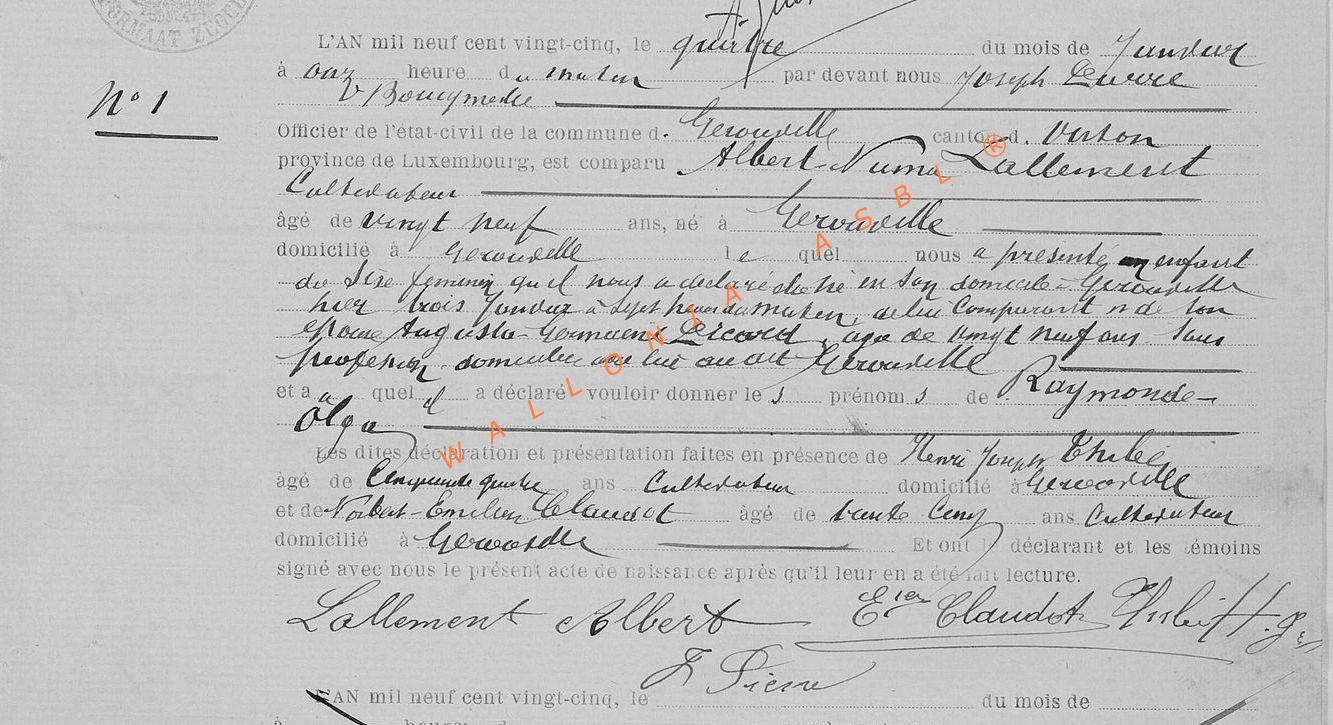 FORMAAT ZEGEL
L'AN mil neuf cent vingt-cinq, le quatre du mois de Janvier
à onze heure du matin par devant nous Joseph Pierre
N° 1
Bourgmestre
Officier de l'état-civil de la commune d. Gerouville canton d. Virton
province de Luxembourg, est comparu Albert Numa Lallement
Cultivateur
âgé de vingt neuf ans, né à Gerouville
domicilié à Gerouville le quel nous a présenté un enfant
du sexe feminin qu'il nous a déclaré être né en son domicile à Gerouville
hier trois Janvier à sept heures du matin, de lui comparant et de son
épouse Augusta Germaine agée de vingt neuf ans sans
profession, domiciliée avec lui au dit Gerouville
et a u quel il a déclaré vouloir donner le s prénom s de Raymonde-
Olga
Les dites déclaration et présentation faites en présence de Henri Joseph
âgé de Cinquante quatre ans Cultivateur domicilié à Gerouville
et de Norbert-Emilien Claudot âgé de trente cinq ans Cultivateur
domicilié à Gerouville Et ont le déclarant et les témoins
signé avec nous le présent acte de naissance après qu'il leur en a été fait lecture.
Lallement Albert Eien Claudot
J Pierre
L'AN mil neuf cent vingt-cinq, le du mois de
à heure d
WALLONIA ASBL ®